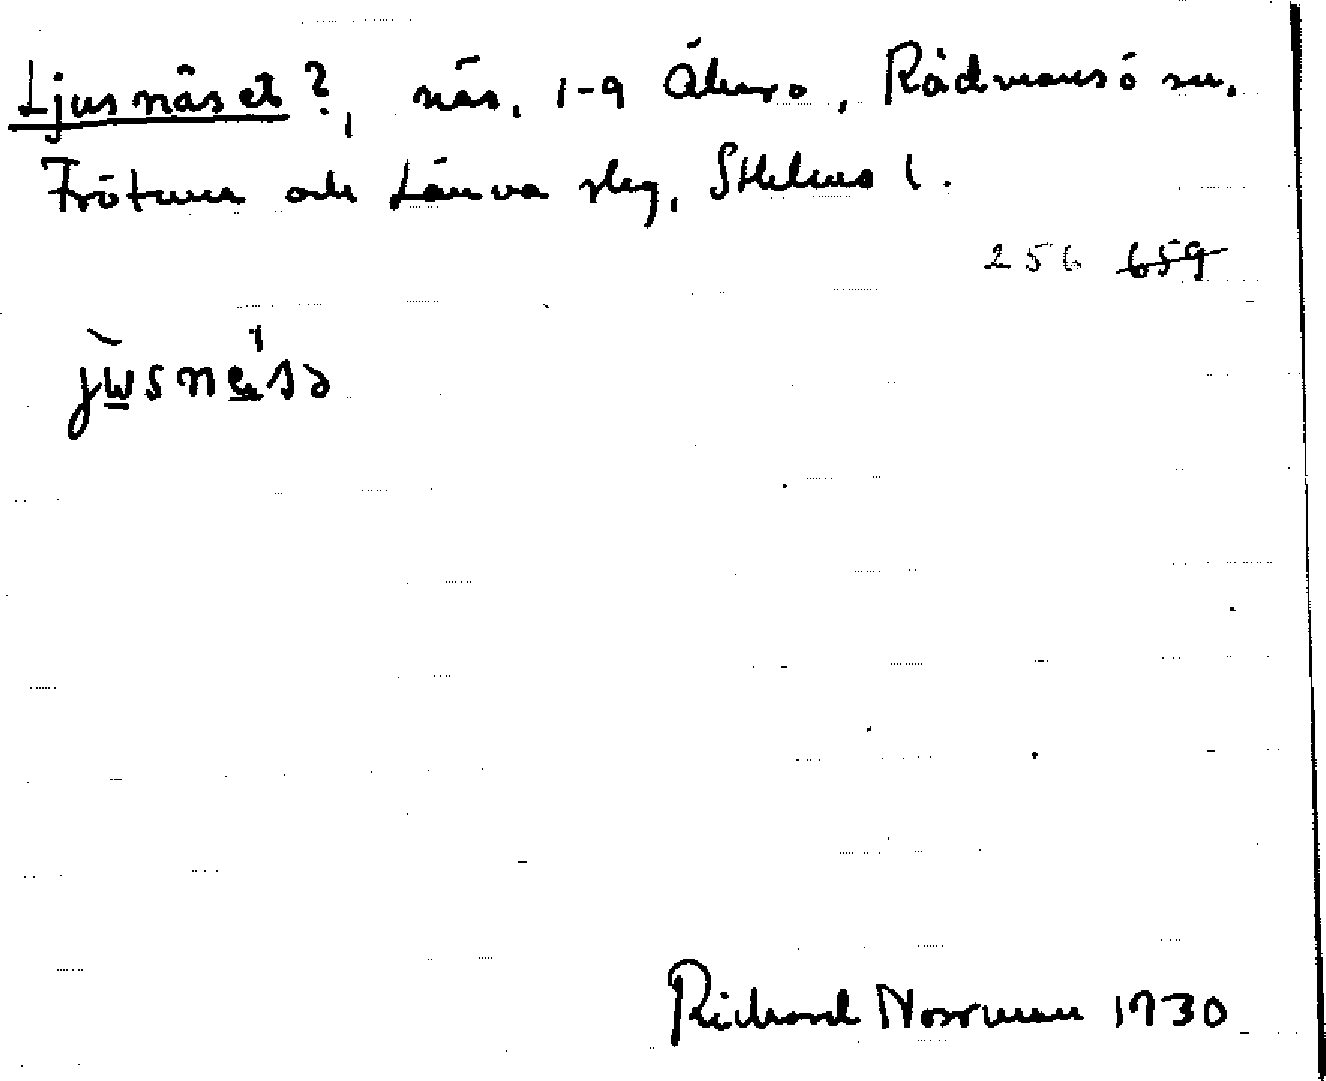 Ljusnäset?, näs, 1-9 Åkerö, Rådmansö sn.
Frötuna och Länna slg, Sthlms l.
256 659
Richard Norrman 1930